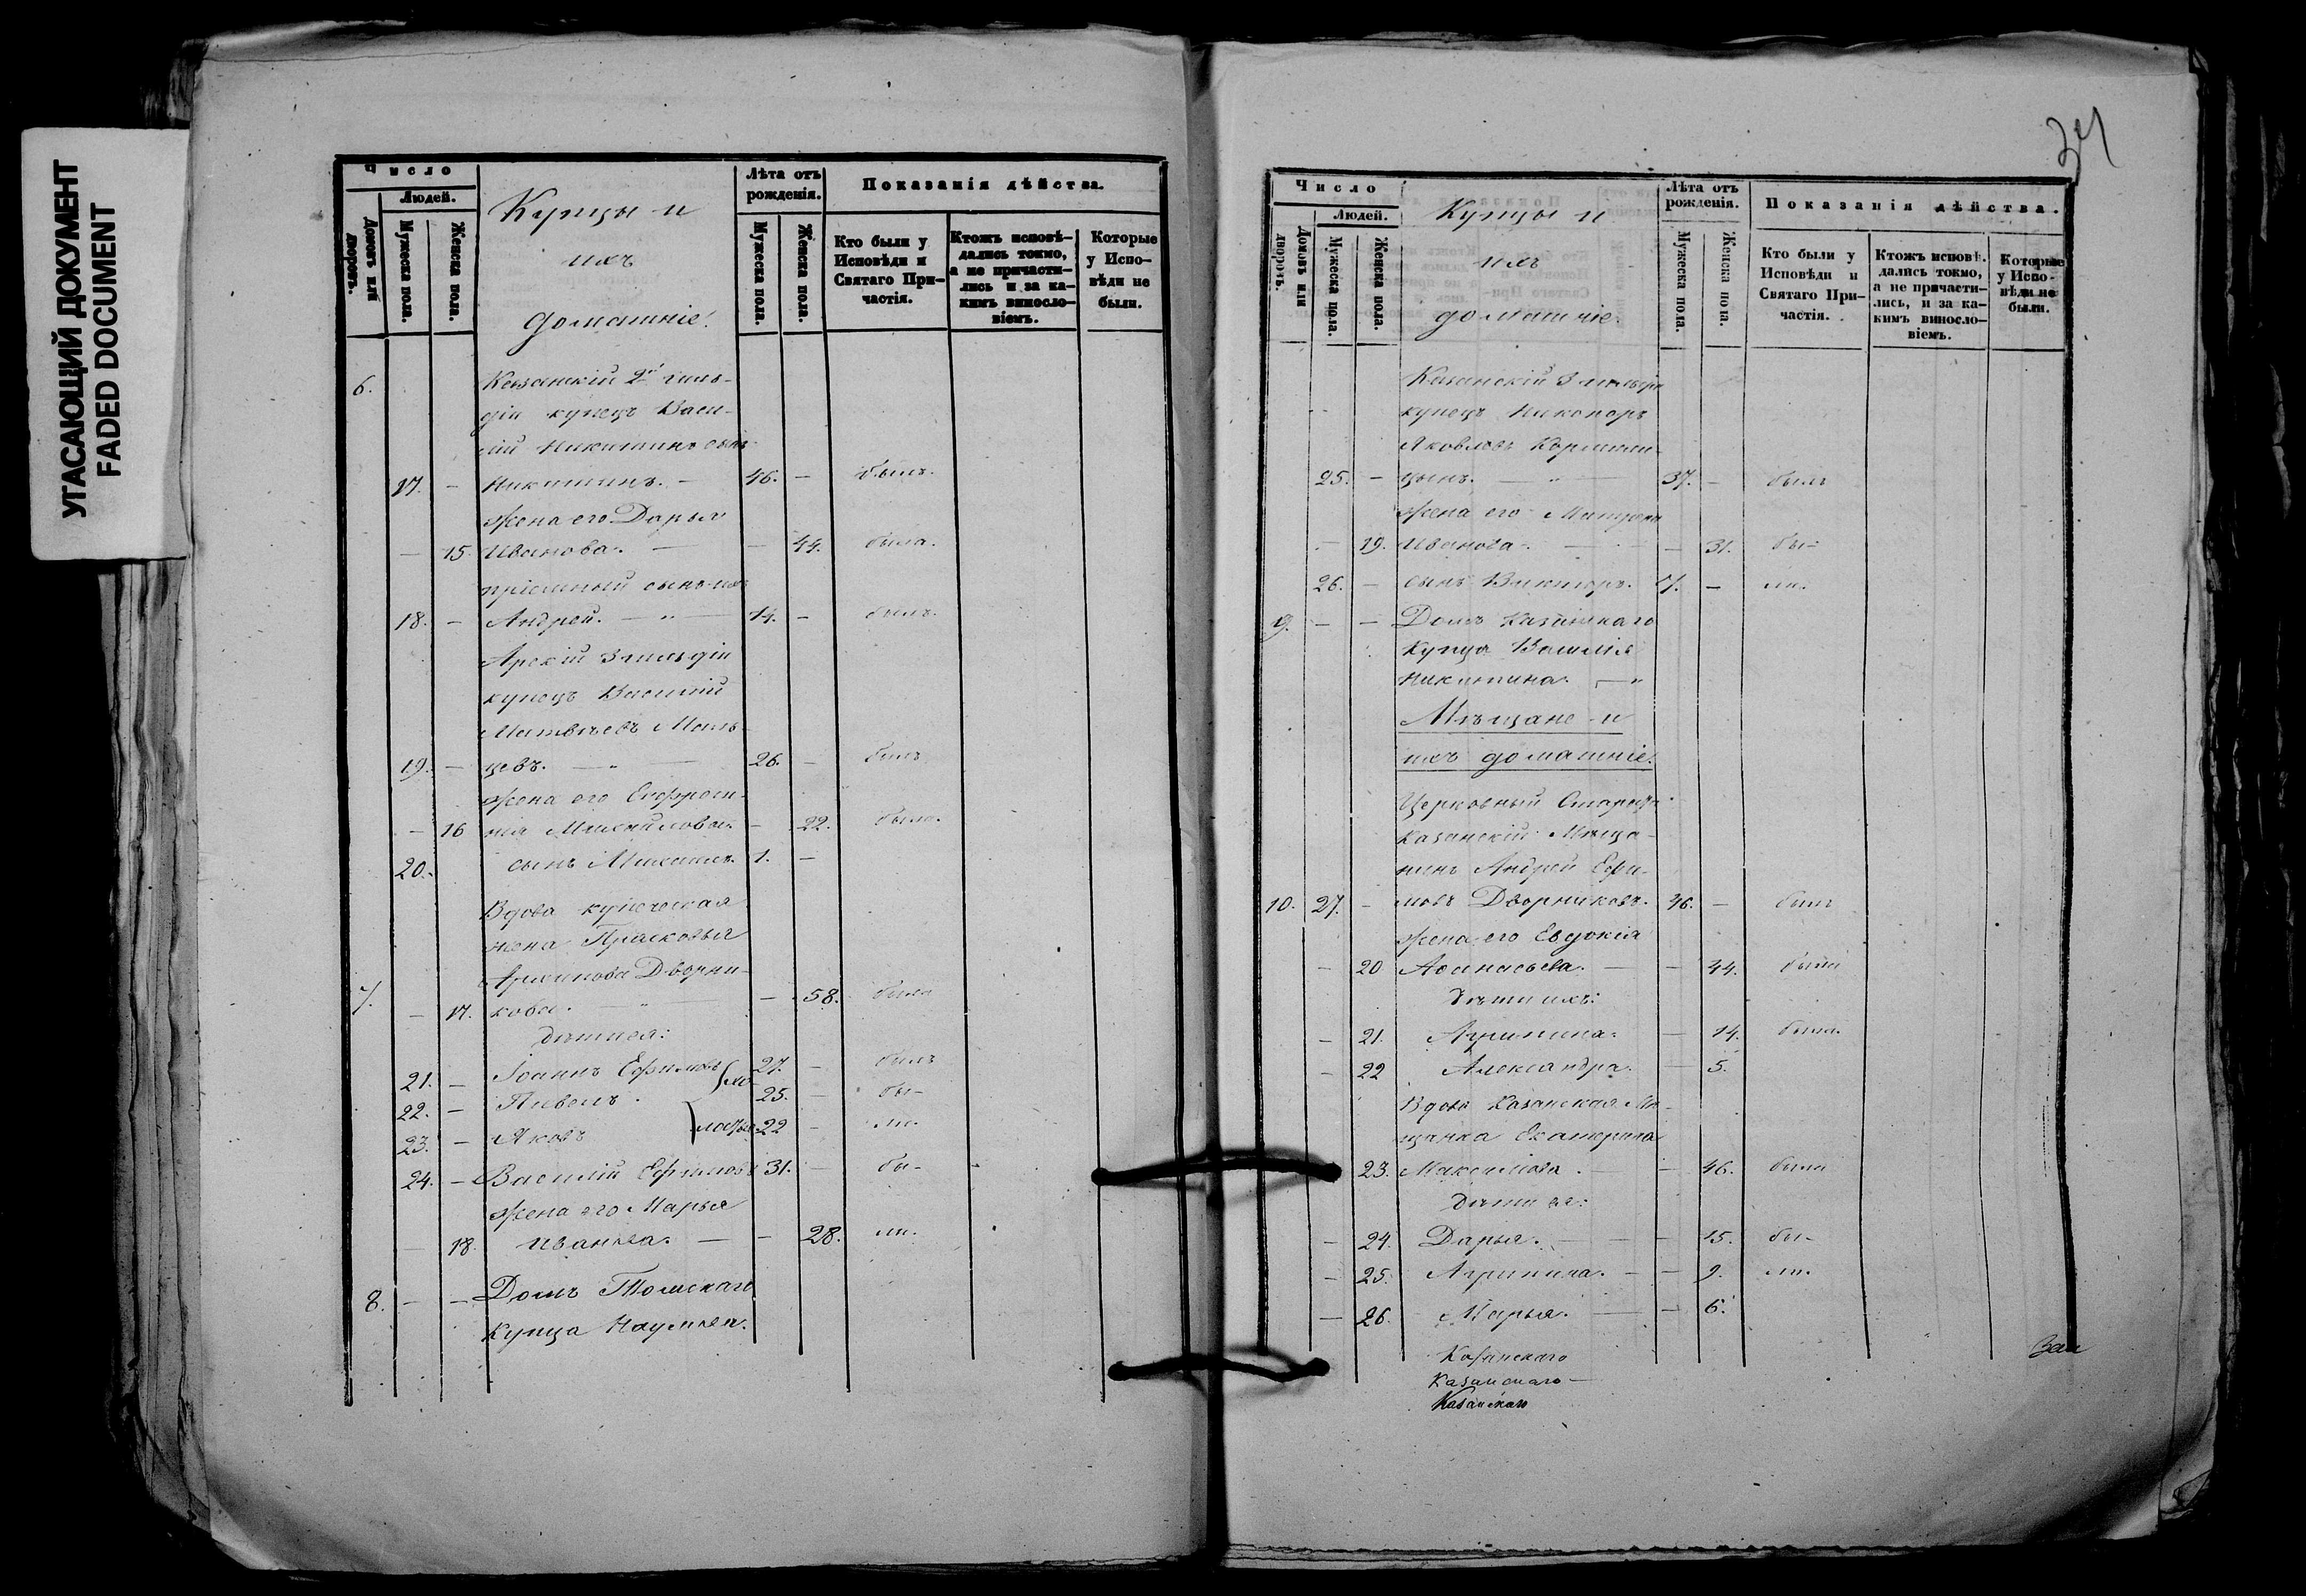 УГАСАЮЩИЙ ДОКУМЕНТ
FADED DOCUMENT
Число
Людей.
Домовъ или дворовъ.
Мужеска пола.
Женска пола.
Купцы и
ихъ
домашніе.
Лѣта отъ рожденія.
Мужеска пола.
Женска пола.
Показанія дѣйства.
Кто были у Исповѣди и Святаго При-частія.
Ктожъ исповѣ-дались токмо, а не причасти-лись и за ка-кимъ винословіемъ.
Которые у Испо-вѣди не были.
6. Казанскій 2й гиль-
діи купецъ Васи-
лій Никитинъ сынъ
17. - Никитинъ. - 46. - былъ.
жена его Дарья
- 15. Иванова. - - 44. была.
пріемный сынъ ихъ
18. - Андрей. - " - 14. - былъ.
Арскій 3 гильдіи
купецъ Василій
Матвѣевъ Маль-
19. - цевъ. - " - 26. - былъ
жена его Евфроси-
- 16 нія Михайлова. - 22. была.
20. сынъ Михаилъ. 1. -
Вдова купеческая
жена Прасковья
Архипова Дворни-
7. - 17. кова. - " - - 58. была
дѣти ея:
21. - Іоаннъ Ефимовъ 27. - былъ
22. - Павелъ. 25. - бы-
хо-
23. - Яковъ 22 - ли.
лосты
24. - Василій Ефимовъ 31. - бы-
жена его Марья
- 18. Иванова. - - 28. ли.
8. - - Домъ Томскаго
Купца Наумова.
34
Число
Людей.
Домовъ или дворовъ.
Мужеска пола.
Женска пола.
Купцы и
ихъ
домашніе.
Лѣта отъ рожденія.
Мужеска пола.
Женска пола.
Показанія дѣйства.
Кто были у Исповѣди и Святаго При-частія.
Ктожъ исповѣ-дались токмо, а не причасти-лись, и за ка-кимъ винословіемъ.
Которые у Испо-вѣди не были.
Казанскій 3 гильдіи
купецъ Никаноръ
Яковлевъ
25. - цынъ. - " - 37. - былъ
жена его Матрона
- 19. Иванова. - - 31. бы-
26. - сынъ Викторъ. 7. - ли.
9. - - Домъ Казанскаго
Купца Василія
Никитина. - "
Мѣщане и
ихъ домашніе.
Церковный Староста
Казанскій Мѣща-
нинъ Андрей Ефи-
10. 27. - мовъ Дворниковъ. 46. - былъ
жена его Евдокія
- 20 Аѳанасьева. - - 44. была
Дѣти ихъ:
- 21. Агрипина. - 14. была.
- 22 Александра. - 5.
Вдова Казанская Мѣ-
щанка Екатерина
23. Максимова. - 46. была
Дѣти ея:
- 24. Дарья. - - 15. бы-
- 25. Агрипина. - - 9. ли.
- 26. Марья. - - 6.
Казанскаго
Казанскаго
Казанскаго